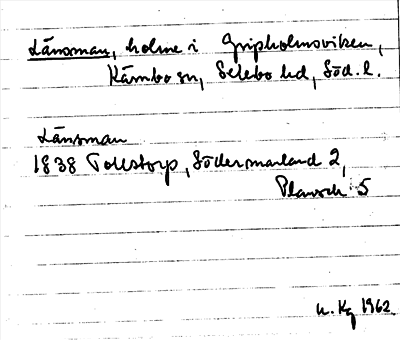 Länsman, holme i Gripholmsviken,
Kärnbo sn, Selebo hd, Söd. l.
Länsman
1838 Tollstorp, Södermanland 2,
Plansch 5
N. Kg 1962